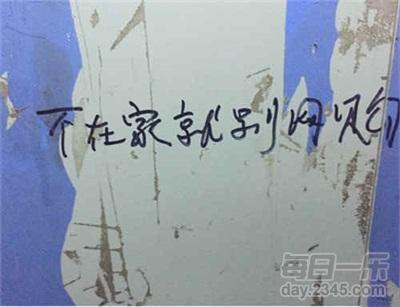 不在家就别网购
每日一乐
day.2345.com